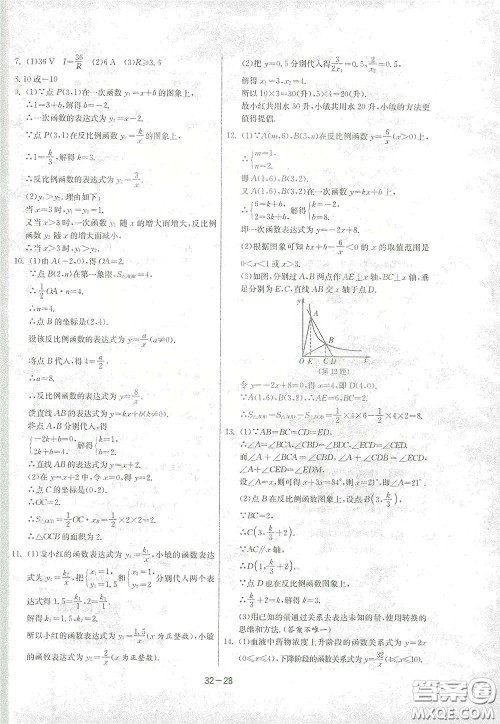 7. (1)36 V I=36/R (2)6 A (3)R≥3.5
8. 10 或 -10
9. (1)∵点 P(3,1)在一次函数 y₁=x+b 的图象上,
∴1=3+b,解得 b=-2.
∴一次函数的表达式为 y₁=x-2.
∵点 P(3,1)在反比例函数 y₂=k/x 的图象上,
∴1=k/3,解得 k=3.
∴反比例函数的表达式为 y₂=3/x.
(2)y₁>y₂.理由如下:
当 x=3 时,y₁=y₂=1.
又当 x>3 时,一次函数 y₁ 随 x 的增大而增大,反比例
函数 y₂ 随 x 的增大而减小,
∴当 x>3 时,y₁>y₂.
10. (1)由 A(-2,0),得 OA=2.
∵点 B(2,n)在第一象限,S△AOB=4.
∴1/2 OA·n=4.
∴n=4.
∴点 B 的坐标是(2,4).
设该反比例函数的表达式为 y=a/x(a≠0).
将点 B 代入,得 4=a/2,
∴a=8.
∴反比例函数的表达式为 y=8/x.
设直线 AB 的表达式为 y=kx+b(k≠0).
将点 A,B 的坐标分别代入,得
{-2k+b=0, 2k+b=4, 解得{k=1, b=2.
∴直线 AB 的表达式为 y=x+2.
(2)在 y=x+2 中,令 x=0,得 y=2.
∴点 C 的坐标是(0,2).
∴OC=2.
∴S△OCB=1/2 OC·xB=1/2×2×2=2.
∴△OCB 的面积为 2.
11. (1)设小红的函数表达式为 y₁=k₁/x,小敏的函数表
达式为 y₂=k₂/x,把{x=1, y=1.5 和{x=1, y=2 分别代入两个表
达式得 1.5=k₁/1,2=k₂/1,
解得 k₁=1.5,k₂=2.
所以小红的函数表达式为 y₁=1.5/x(x 为正整数),小
敏的函数表达式为 y₂=2/x(x 为正整数).
(2)把 y=0.5 分别代入得 3/2x₁=0.5,2/x₂=0.5,
解得 x₁=3,x₂=4.
10×3=30(升),5×4=20(升).
故小红共用水 30 升,小敏共用水 20 升,小敏的方法更
值得提倡.
12. (1)∵A(m,6),B(3,n)在反比例函数 y=6/x(x>0)上,
∴{m=1, n=2.
即 A(1,6),B(3,2).
又∵A(1,6),B(3,2)在一次函数 y=kx+b 上,
∴{6=k+b, 2=3k+b, 解得{k=-2, b=8.
即一次函数表达式为 y=-2x+8.
(2)根据图象可知 kx+b-6/x<0 的 x 的取值范围是
0<x<1 或 x>3.
(3)如图,分别过 A,B 两点作 AE⊥x 轴,BC⊥x 轴,垂
足分别是 E,C,直线 AB 交 x 轴于点 D.
y A B O E C D x
(第12题)
令 y=-2x+8=0,得 x=4,即 D(4,0).
∵A(1,6),B(3,2),∴AE=6,BC=2.
∴S△AOB=S△AOD-S△BOD=1/2×4×6-1/2×4×2=8.
13. (1)∵AB=BC=CD=ED,
∴∠A=∠BCA,∠CBD=∠BDC,∠ECD=∠CED.
而∠A+∠BCA=∠CBD,∠A+∠CDB=∠ECD,
∠A+∠CED=∠EDM.
设∠A=x,则可得 x+3x=84°,则 x=21°,即∠A=21°.
(2)点 B 在反比例函数图象上,设点 B(3,k/3).
∵BC=2,
∴C(3,k/3+2).
∵AC∥x 轴,
∴D(1,k/3+2).
∵点 D 也在反比例函数图象上,
∴k/3+2=k,解得 k=3.
(3)用已知的量通过关系去表达未知的量,使用转换的
思维和方法.(答案不唯一)
14. (1)血液中药物浓度上升阶段的函数关系式为 y=2x
(0≤x≤4),下降阶段的函数关系式为 y=32/x(4≤x≤
32-28
答案圈
MXQE.COM